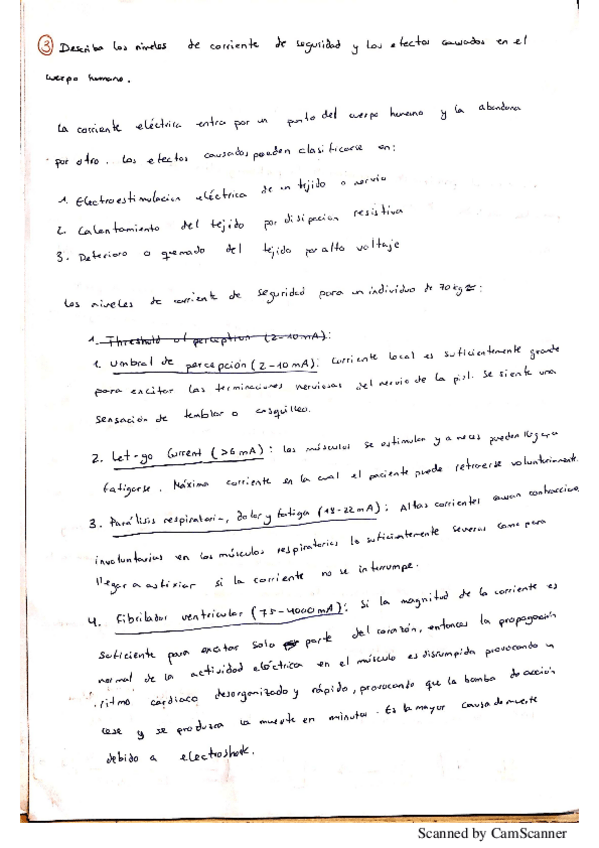 3 Describa los niveles de corriente de seguridad y los efectos causados en el
cuerpo humano.
La corriente eléctrica entra por un punto del cuerpo humano y la abandona
por otro. Los efectos causados pueden clasificarse en:
1. Electroestimulacion eléctrica de un tejido o nervio
2. Calentamiento del tejido por disipacion resistiva
3. Deterioro o quemado del tejido por alto voltaje
Los niveles de corriente de seguridad para un individuo de 70kg:
1. Threshold of perception (2-10mA):
1. Umbral de percepción (2-10mA): Corriente local es suficientemente grande
para excitar las terminaciones nerviosas del nervio de la piel. Se siente una
sensación de temblar o
2. Let-go Current (>6mA): los músculos se estimulan y a veces pueden llegar a
fatigarse. Máxima corriente en la cual el paciente puede retraerse voluntariamente.
3. Parálisis respiratoria, dolor y fatiga (18-22mA): Altas corrientes causan
involuntarias en los músculos respiratorios lo suficientemente severas como para
llegar a asfixiar si la corriente no se interrumpe.
4. Fibrilador ventricular (75-4000mA): Si la magnitud de la corriente es
suficiente para excitar solo parte del corazón, entonces la propagación
normal de la actividad eléctrica en el músculo es disrumpida provocando un
ritmo cardiaco desorganizado y rápido, provocando que la bomba de acción
cese y se produzca la muerte en minutos. Es la mayor causa de muerte
debido a electroshock.
Scanned by CamScanner